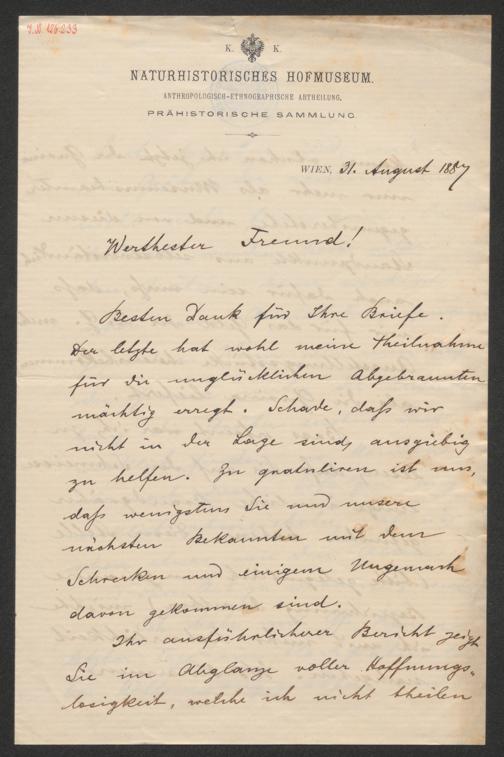 J.N. 126.233
K. K.
NATURHISTORISCHES HOFMUSEUM.
ANTHROPOLOGISCH-ETHNOGRAPHISCHE ABTHEILUNG.
PRÄHISTORISCHE SAMMLUNG
WIEN, 31. August 1887
Werthester Freund!
Besten Dank für Ihre Briefe.
Der letzte hat wohl meine Theilnahme
für die unglücklichen Abgebrannten
mächtig erregt. Schade, daß wir
nicht in der Lage sind, ausgiebig
zu helfen. Zu gratuliren ist nur,
daß wenigstens Sie und unsere
nächsten Bekannten mit dem
Schrecken und einigem Ungemach
davon gekommen sind.
Ihr ausführlicherer Bericht zeigt
Sie im Abglanze voller Hoffnungs-
losigkeit, welche ich nicht theilen